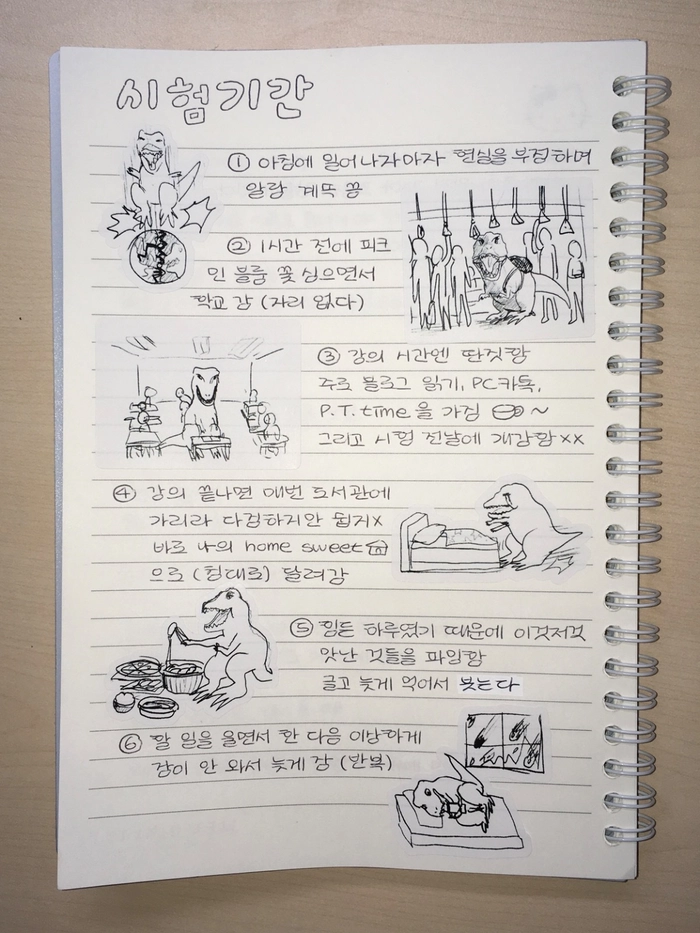 시험기간
① 아침에 일어나자마자 현실을 부정하며
알람 계속 끔
② 1시간 전에 피크
민 블룸 꽃 심으면서
학교 감 (자리 없다)
③ 강의 시간엔 딴짓함
주로 블로그 읽기, PC카톡,
P.T. time을 가짐 ~
그리고 시험 전날에 개감함 xx
④ 강의 끝나면 매번 도서관에
가리라 다짐하지만 쉽지x
바로 나의 home sweet
으로 (침대로) 달려감
⑤ 힘든 하루였기 때문에 이것저것
맛난 것들을 파일함
글고 늦게 먹어서 붓는다
⑥ 할 일을 울면서 한 다음 이상하게
잠이 안 와서 늦게 잠 (반복)